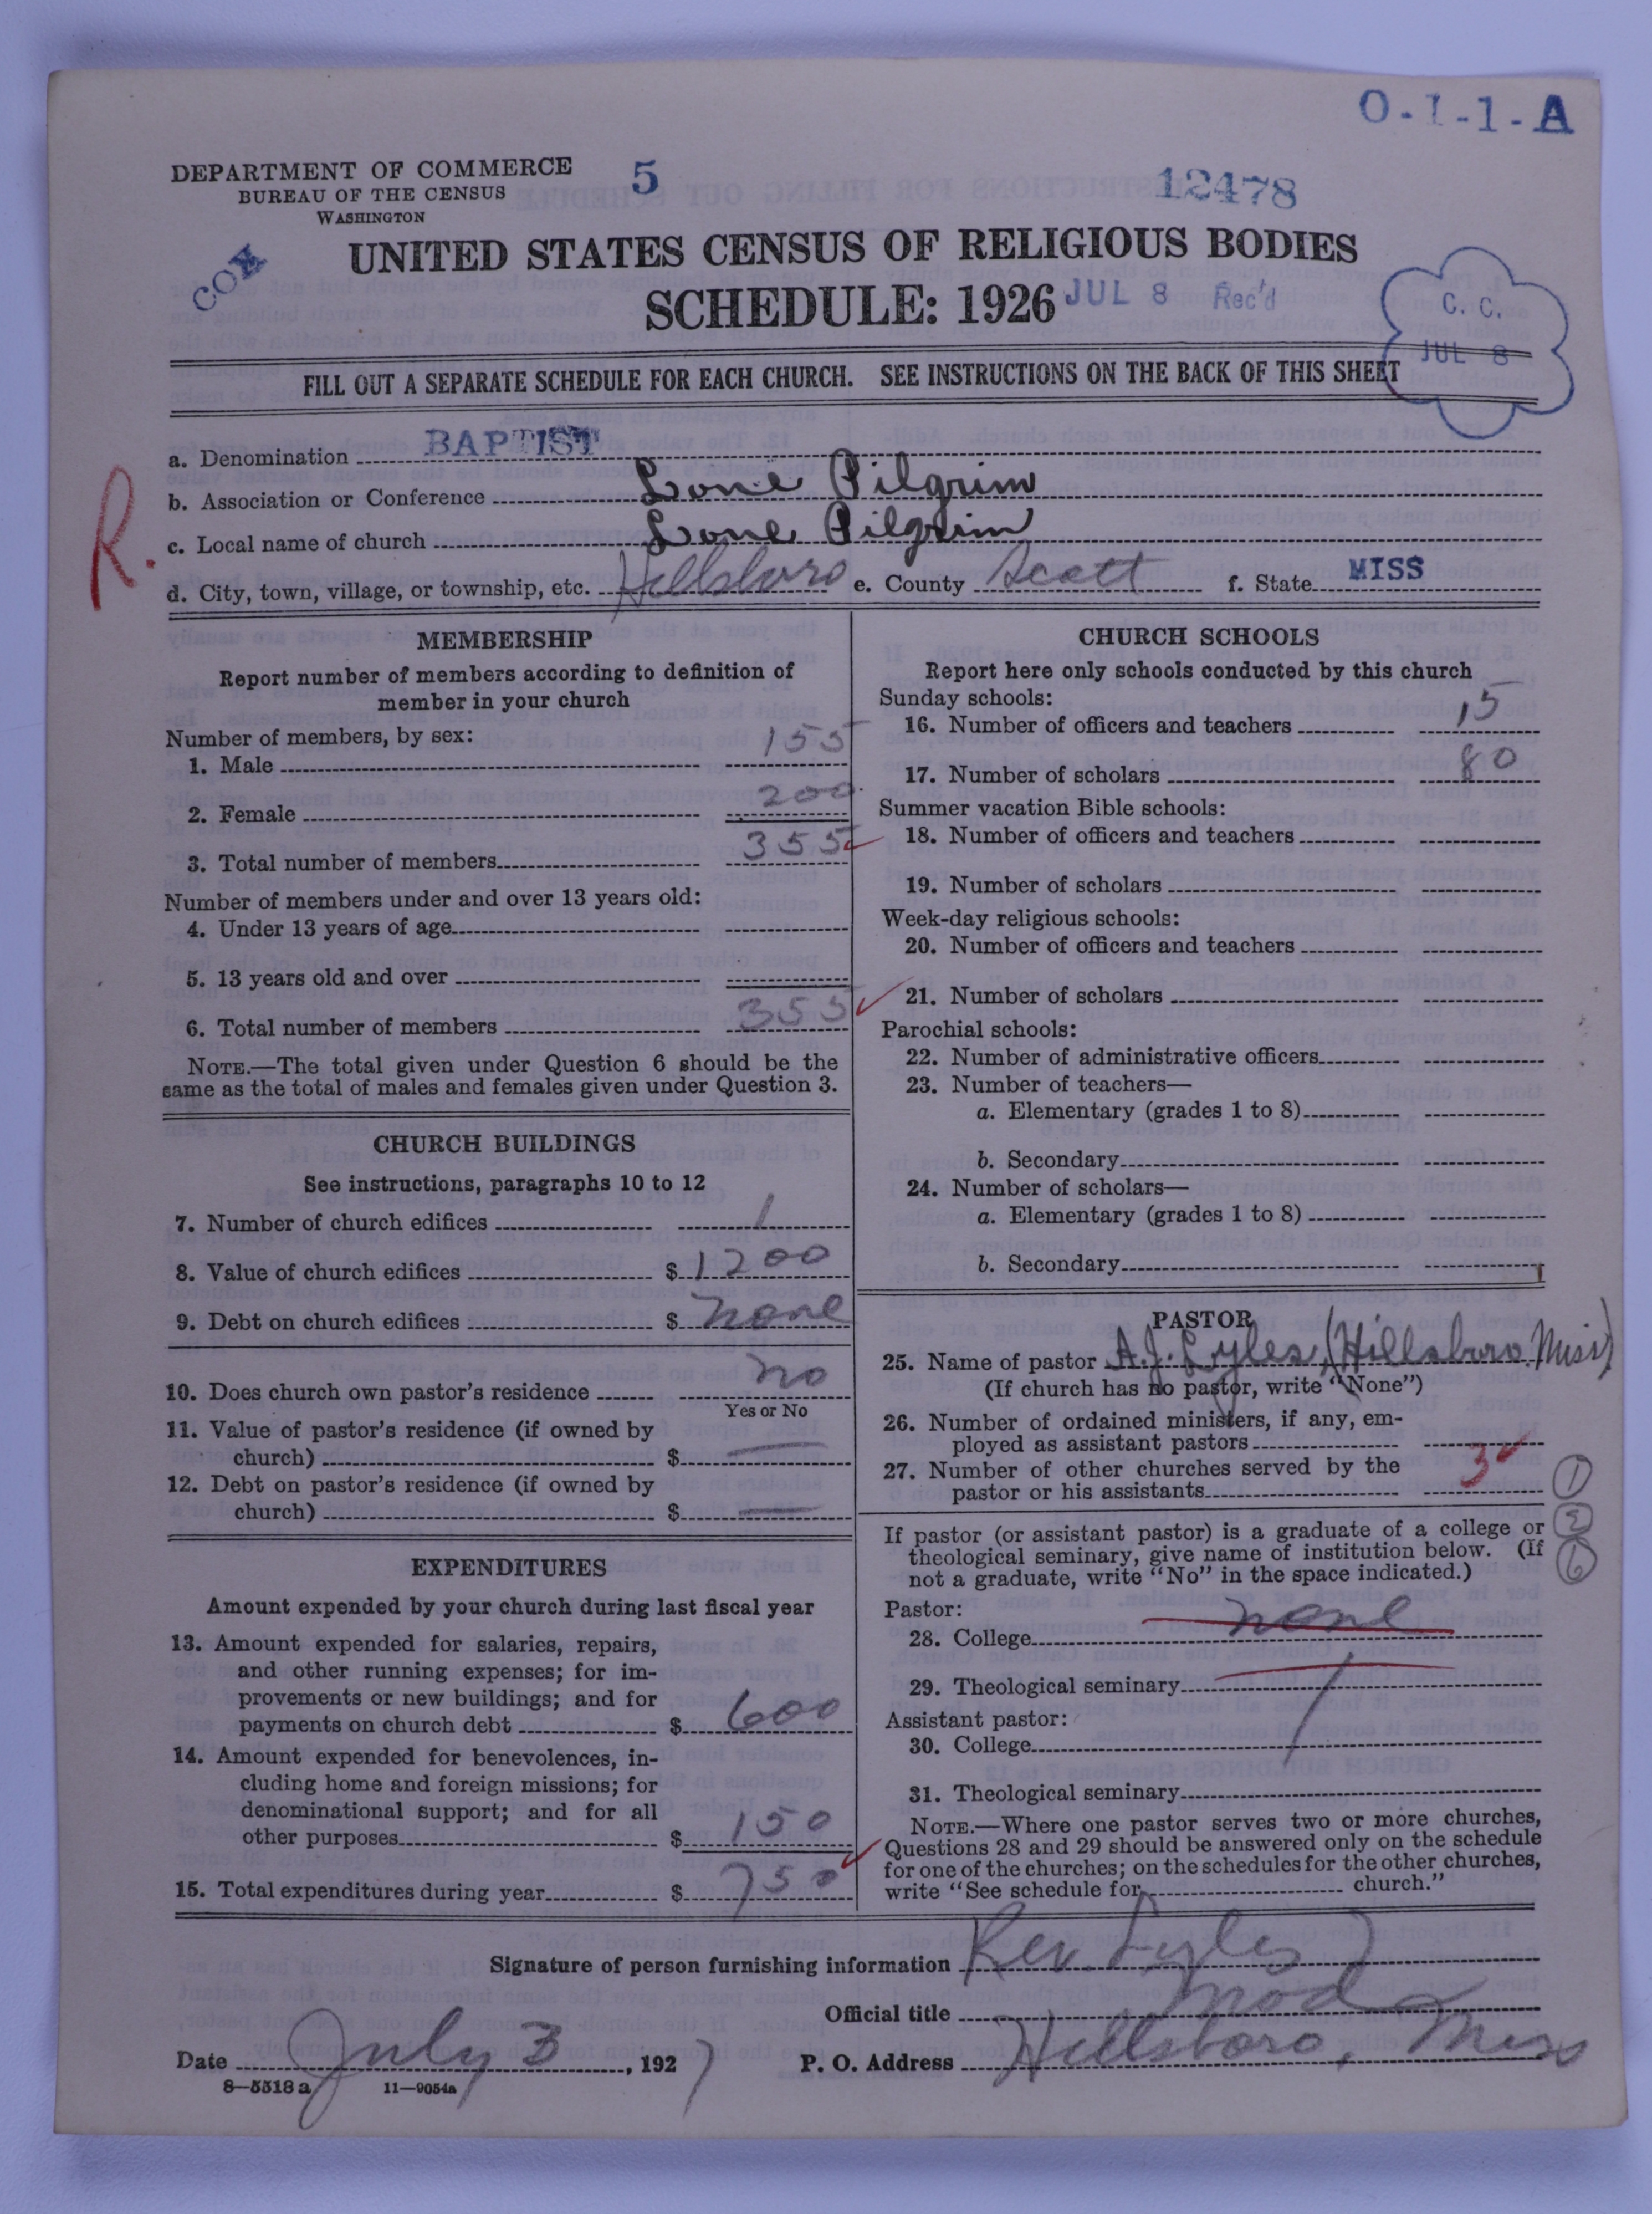 O-1-1-A
DEPARTMENT OF COMMERCE
BUREAU OF THE CENSUS
WASHINGTON
5
12478
COX
UNITED STATES CENSUS OF RELIGIOUS BODIES
SCHEDULE: 1926
JUL 8 Rec'd
C. C.
JUL 8
FILL OUT A SEPARATE SCHEDULE FOR EACH CHURCH. SEE INSTRUCTIONS ON THE BACK OF THIS SHEET
R.
a. Denomination BAPTIST
b. Association or Conference Lone Pilgrim
c. Local name of church Lone Pilgrim
d. City, town, village, or township, etc. Hillsboro e. County Scott f. State MISS
MEMBERSHIP
Report number of members according to definition of
member in your church
Number of members, by sex:
1. Male 155
2. Female 200
3. Total number of members 355
Number of members under and over 13 years old:
4. Under 13 years of age
5. 13 years old and over
6. Total number of members 355
NOTE.—The total given under Question 6 should be the
same as the total of males and females given under Question 3.
CHURCH BUILDINGS
See instructions, paragraphs 10 to 12
7. Number of church edifices 1
8. Value of church edifices $ 1200
9. Debt on church edifices $ none
10. Does church own pastor's residence no
Yes or No
11. Value of pastor's residence (if owned by
church) $ —
12. Debt on pastor's residence (if owned by
church) $ —
EXPENDITURES
Amount expended by your church during last fiscal year
13. Amount expended for salaries, repairs,
and other running expenses; for im-
provements or new buildings; and for
payments on church debt $ 600
14. Amount expended for benevolences, in-
cluding home and foreign missions; for
denominational support; and for all
other purposes $ 150
15. Total expenditures during year $ 750
CHURCH SCHOOLS
Report here only schools conducted by this church
Sunday schools:
16. Number of officers and teachers 15
17. Number of scholars 80
Summer vacation Bible schools:
18. Number of officers and teachers
19. Number of scholars
Week-day religious schools:
20. Number of officers and teachers
21. Number of scholars
Parochial schools:
22. Number of administrative officers
23. Number of teachers—
a. Elementary (grades 1 to 8)
b. Secondary
24. Number of scholars—
a. Elementary (grades 1 to 8)
b. Secondary
PASTOR
25. Name of pastor A.J. Lyles, (Hillsboro Miss)
(If church has no pastor, write "None")
26. Number of ordained ministers, if any, em-
ployed as assistant pastors
27. Number of other churches served by the
pastor or his assistants 3
1
2
6
If pastor (or assistant pastor) is a graduate of a college or
theological seminary, give name of institution below. (If
not a graduate, write "No" in the space indicated.)
Pastor:
28. College none
29. Theological seminary
Assistant pastor:
30. College
31. Theological seminary
NOTE.—Where one pastor serves two or more churches,
Questions 28 and 29 should be answered only on the schedule
for one of the churches; on the schedules for the other churches,
write "See schedule for church."
Signature of person furnishing information Rev. Lyles
Official title Mod
Date July 3, 1927 P. O. Address Hillsboro, Miss
8—5518 a 11—9054a